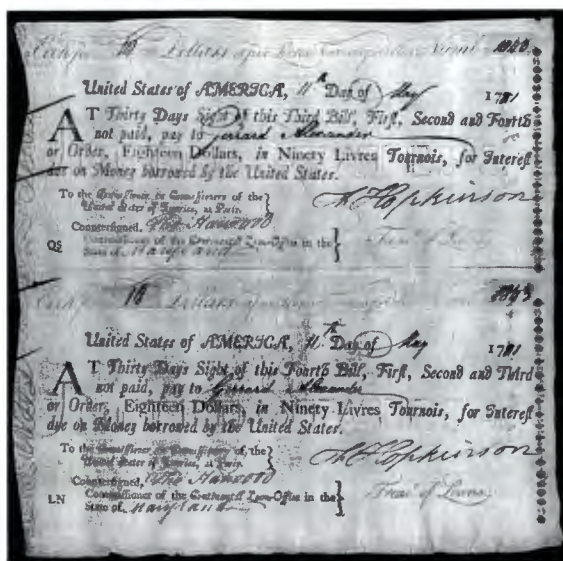 18 Dollars
United States of AMERICA, 11th Day of May 1781
AT Thirty Days Sight of this Third Bill, First, Second and Fourth
not paid, pay to Gerrard Alexander
or Order, Eighteen Dollars, in Ninety Livres Tournois, for Interest
due on Money borrowed by the United States.
To the Commissioner or Commissioners of the
United States of America, at Paris.
F Hopkinson
Countersigned, Harwood
QS Commissioner of the Continental Loan-Office in the
State of Maryland
Treasr. of Loans
18 Dollars
United States of AMERICA, 11th Day of May 1781
AT Thirty Days Sight of this Fourth Bill, First, Second and Third
not paid, pay to Gerrard Alexander
or Order, Eighteen Dollars, in Ninety Livres Tournois, for Interest
due on Money borrowed by the United States.
To the Commissioner or Commissioners of the
United States of America, at Paris.
F Hopkinson
Countersigned, Harwood
LN Commissioner of the Continental Loan-Office in the
State of Maryland
Treasr. of Loans